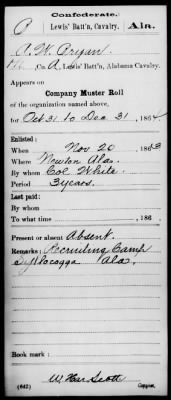 Confederate.
P Lewis' Batt'n, Cavalry. Ala.
A. W. Pryan
Co. A, Lewis' Batt'n, Alabama Cavalry.
Appears on
Company Muster Roll
of the organization named above,
for Oct 31 to Dec 31, 1864
Enlisted:
When Nov 20, 1863
Where Newton Ala.
By whom Col. White
Period 3 years.
Last paid:
By whom
To what time , 186 .
Present or absent Absent
Remarks: Recruiting Camp
Ala.
Book mark:
Scott
(642) Copyist.